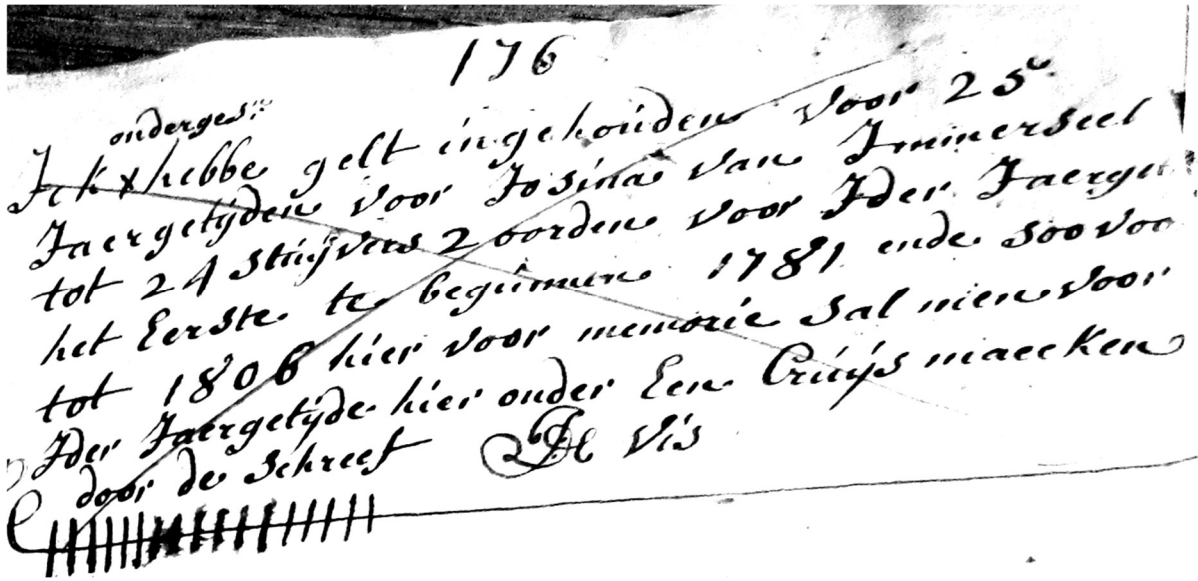 176
onderges:
Ick x hebbe gelt ingehouden voor 25
Jaergetijden voor Josina van Immerseel
tot 24 stuijvers 2 oorden voor Ider
het Eerste te beginnen 1781 ende soo voo
tot 1806 hier voor memorie sal men voor
Ider Jaergetijde hier onder Een Cruijs maecken
door de schreef De Vis